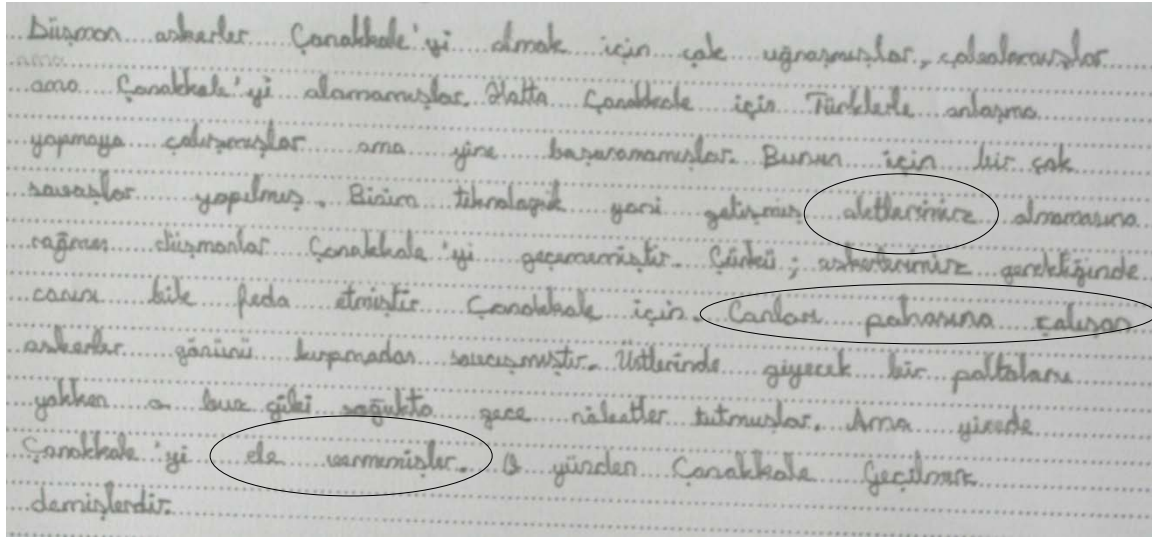 Düşman askerler Çanakkale'yi almak için çok uğraşmışlar, çabalamışlar
ama Çanakkale'yi alamamışlar. Hatta Çanakkale için Türklerle anlaşma
yapmaya çalışmışlar ama yine başaramamışlar. Bunun için bir çok
savaşlar yapılmış. Bizim teknolojik yani gelişmiş aletlerimiz olmamasına
rağmen düşmanlar Çanakkale'yi geçememiştir. Çünkü; askerlerimiz gerektiğinde
canını bile feda etmiştir Çanakkale için. Canları pahasına çalışan
askerler gözünü kırpmadan savaşmıştır. Üstlerinde giyecek bir paltoları
yokken o buz gibi soğukta gece nöbetler tutmuşlar. Ama yinede
Çanakkale'yi ele vermemişler. O yünden Çanakkale Geçilmez
demişlerdir.